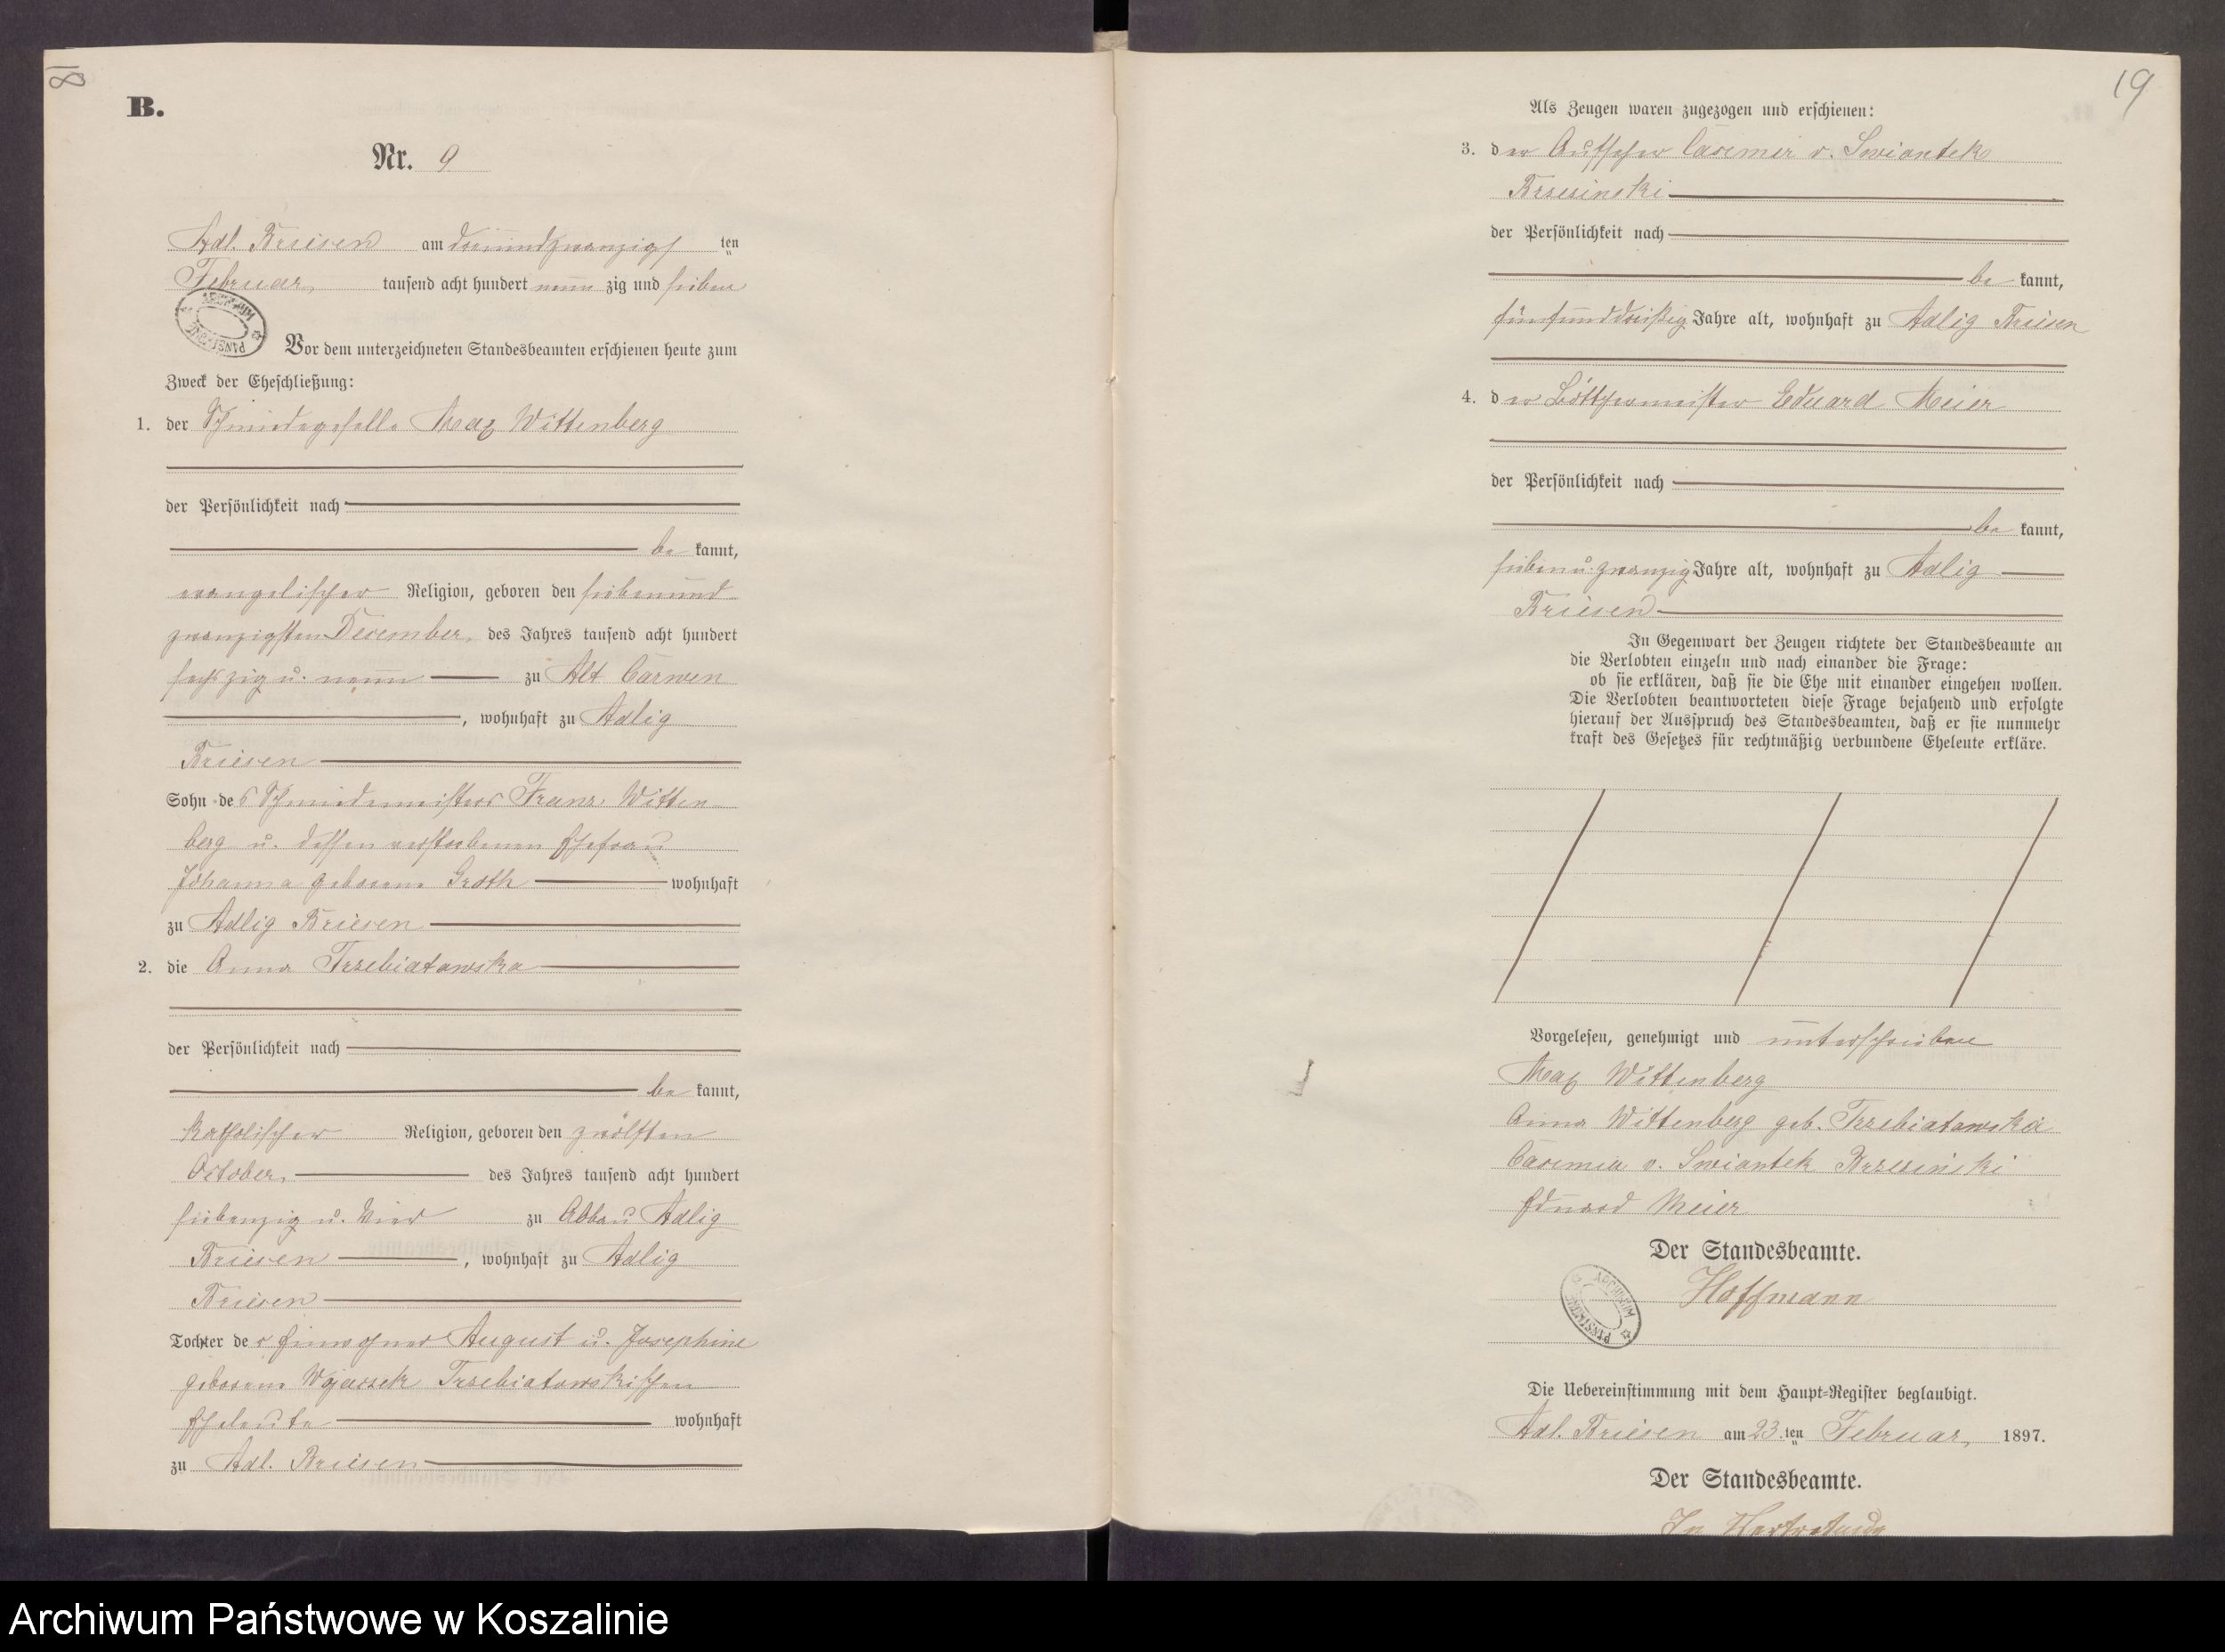 18
B.
Nr. 9
Adl. Briesen am dreiundzwanzigs ten
Februar tausend acht hundert neun zig und sieben
ARCHIWUM PAŃSTWOWE
Vor dem unterzeichneten Standesbeamten erschienen heute zum
Zweck der Eheschließung:
1. der Schmiedegeselle Max Wittenberg
der Persönlichkeit nach
be kannt,
evangelischer Religion, geboren den siebenund
zwanzigsten December, des Jahres tausend acht hundert
sechszig u. neun zu Alt Carwen
, wohnhaft zu Adlig
Briesen
Sohn des Schmiedemeisters Franz Witten
berg u. dessen verstorbenen Ehefrau
Johanna geborene Groth wohnhaft
zu Adlig Briesen
2. die Anna Trzebiatowska
der Persönlichkeit nach
be kannt,
katholischer Religion, geboren den zwölften
October, des Jahres tausend acht hundert
siebenzig u. vier zu Abbau Adlig
Briesen , wohnhaft zu Adlig
Briesen
Tochter der Einwohner August u. Josephine
geborene Trzebiatowskischen
Eheleute wohnhaft
zu Adl. Briesen
19
Als Zeugen waren zugezogen und erschienen:
3. der Casimir v. Swiantek
Brzezinski
der Persönlichkeit nach
be kannt,
fünfunddreißig Jahre alt, wohnhaft zu Adlig Briesen
4. der Böttchermeister Eduard Meier
der Persönlichkeit nach
be kannt,
sieben u. zwanzig Jahre alt, wohnhaft zu Adlig
Briesen
In Gegenwart der Zeugen richtete der Standesbeamte an
die Verlobten einzeln und nach einander die Frage:
ob sie erklären, daß sie die Ehe mit einander eingehen wollen.
Die Verlobten beantworteten diese Frage bejahend und erfolgte
hierauf der Ausspruch des Standesbeamten, daß er sie nunmehr
kraft des Gesetzes für rechtmäßig verbundene Eheleute erkläre.
Vorgelesen, genehmigt und unterschrieben
Max Wittenberg
Anna Wittenberg geb. Trzebiatowska
Casimir v. Swiantek Brzezinski
Eduard Meier
Der Standesbeamte.
Hoffmann
ARCHIWUM PAŃSTWOWE
Die Uebereinstimmung mit dem Haupt-Register beglaubigt.
Adl. Briesen am 23. ten Februar 1897.
Der Standesbeamte.
In Vertretung
Archiwum Państwowe w Koszalinie